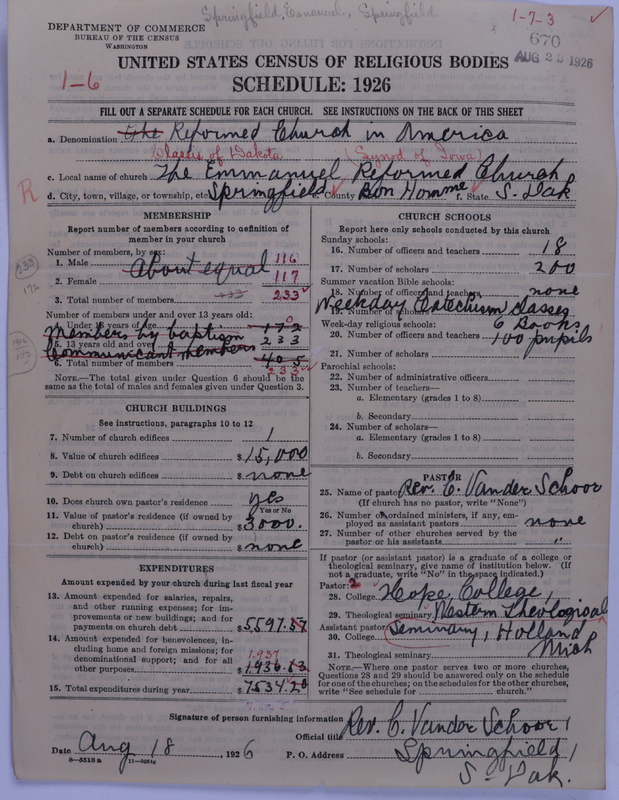 Springfield, Emanuel, Springfield
1-7-3
DEPARTMENT OF COMMERCE
BUREAU OF THE CENSUS
WASHINGTON
670
AUG 23 1926
UNITED STATES CENSUS OF RELIGIOUS BODIES
1-6
SCHEDULE: 1926
FILL OUT A SEPARATE SCHEDULE FOR EACH CHURCH. SEE INSTRUCTIONS ON THE BACK OF THIS SHEET
a. Denomination The Reformed Church in America
Classis of Dakota (Synod of Iowa)
c. Local name of church The Emmanuel Reformed Church
R
d. City, town, village, or township, etc. Springfield e. County Bon Homme f. State S. Dak
MEMBERSHIP
Report number of members according to definition of
member in your church
Number of members, by sex:
1. Male 116
About equal
2. Female 117
3. Total number of members 233 233
Number of members under and over 13 years old:
4. Under 13 years of age 172 0
Members by baptism
5. 13 years old and over 233
Communicant members
6. Total number of members 405
233
NOTE.—The total given under Question 6 should be the
same as the total of males and females given under Question 3.
CHURCH BUILDINGS
See instructions, paragraphs 10 to 12
7. Number of church edifices 1
8. Value of church edifices $15,000
9. Debt on church edifices $ none
10. Does church own pastor's residence yes
Yes or No
11. Value of pastor's residence (if owned by
church) $3000.
12. Debt on pastor's residence (if owned by
church) $ none
EXPENDITURES
Amount expended by your church during last fiscal year
13. Amount expended for salaries, repairs,
and other running expenses; for im-
provements or new buildings; and for
payments on church debt $5597.57
14. Amount expended for benevolences, in-
cluding home and foreign missions; for
denominational support; and for all
1,937
other purposes $1936.63
15. Total expenditures during year $7534.20
CHURCH SCHOOLS
Report here only schools conducted by this church
Sunday schools:
16. Number of officers and teachers 18
17. Number of scholars 200
Summer vacation Bible schools:
18. Number of officers and teachers none
19. Number of scholars
Weekday Catechism classes
Week-day religious schools: 6 Books
20. Number of officers and teachers 100 pupils
21. Number of scholars
Parochial schools:
22. Number of administrative officers
23. Number of teachers—
a. Elementary (grades 1 to 8)
b. Secondary
24. Number of scholars—
a. Elementary (grades 1 to 8)
b. Secondary
PASTOR
25. Name of pastor Rev. C. Vander Schoor
(If church has no pastor, write "None")
26. Number of ordained ministers, if any, em-
ployed as assistant pastors none
27. Number of other churches served by the
pastor or his assistants "
If pastor (or assistant pastor) is a graduate of a college or
theological seminary, give name of institution below. (If
not a graduate, write "No" in the space indicated.)
Pastor: 2
28. College Hope College,
29. Theological seminary Western Theological
Assistant pastor: Seminary, Holland
30. College
Mich
31. Theological seminary
NOTE.—Where one pastor serves two or more churches,
Questions 28 and 29 should be answered only on the schedule
for one of the churches; on the schedules for the other churches,
write "See schedule for church."
Signature of person furnishing information Rev. C. Vander Schoor,
Official title
Date Aug 18, 1926 P. O. Address Springfield,
S-Dak.
8—5518a